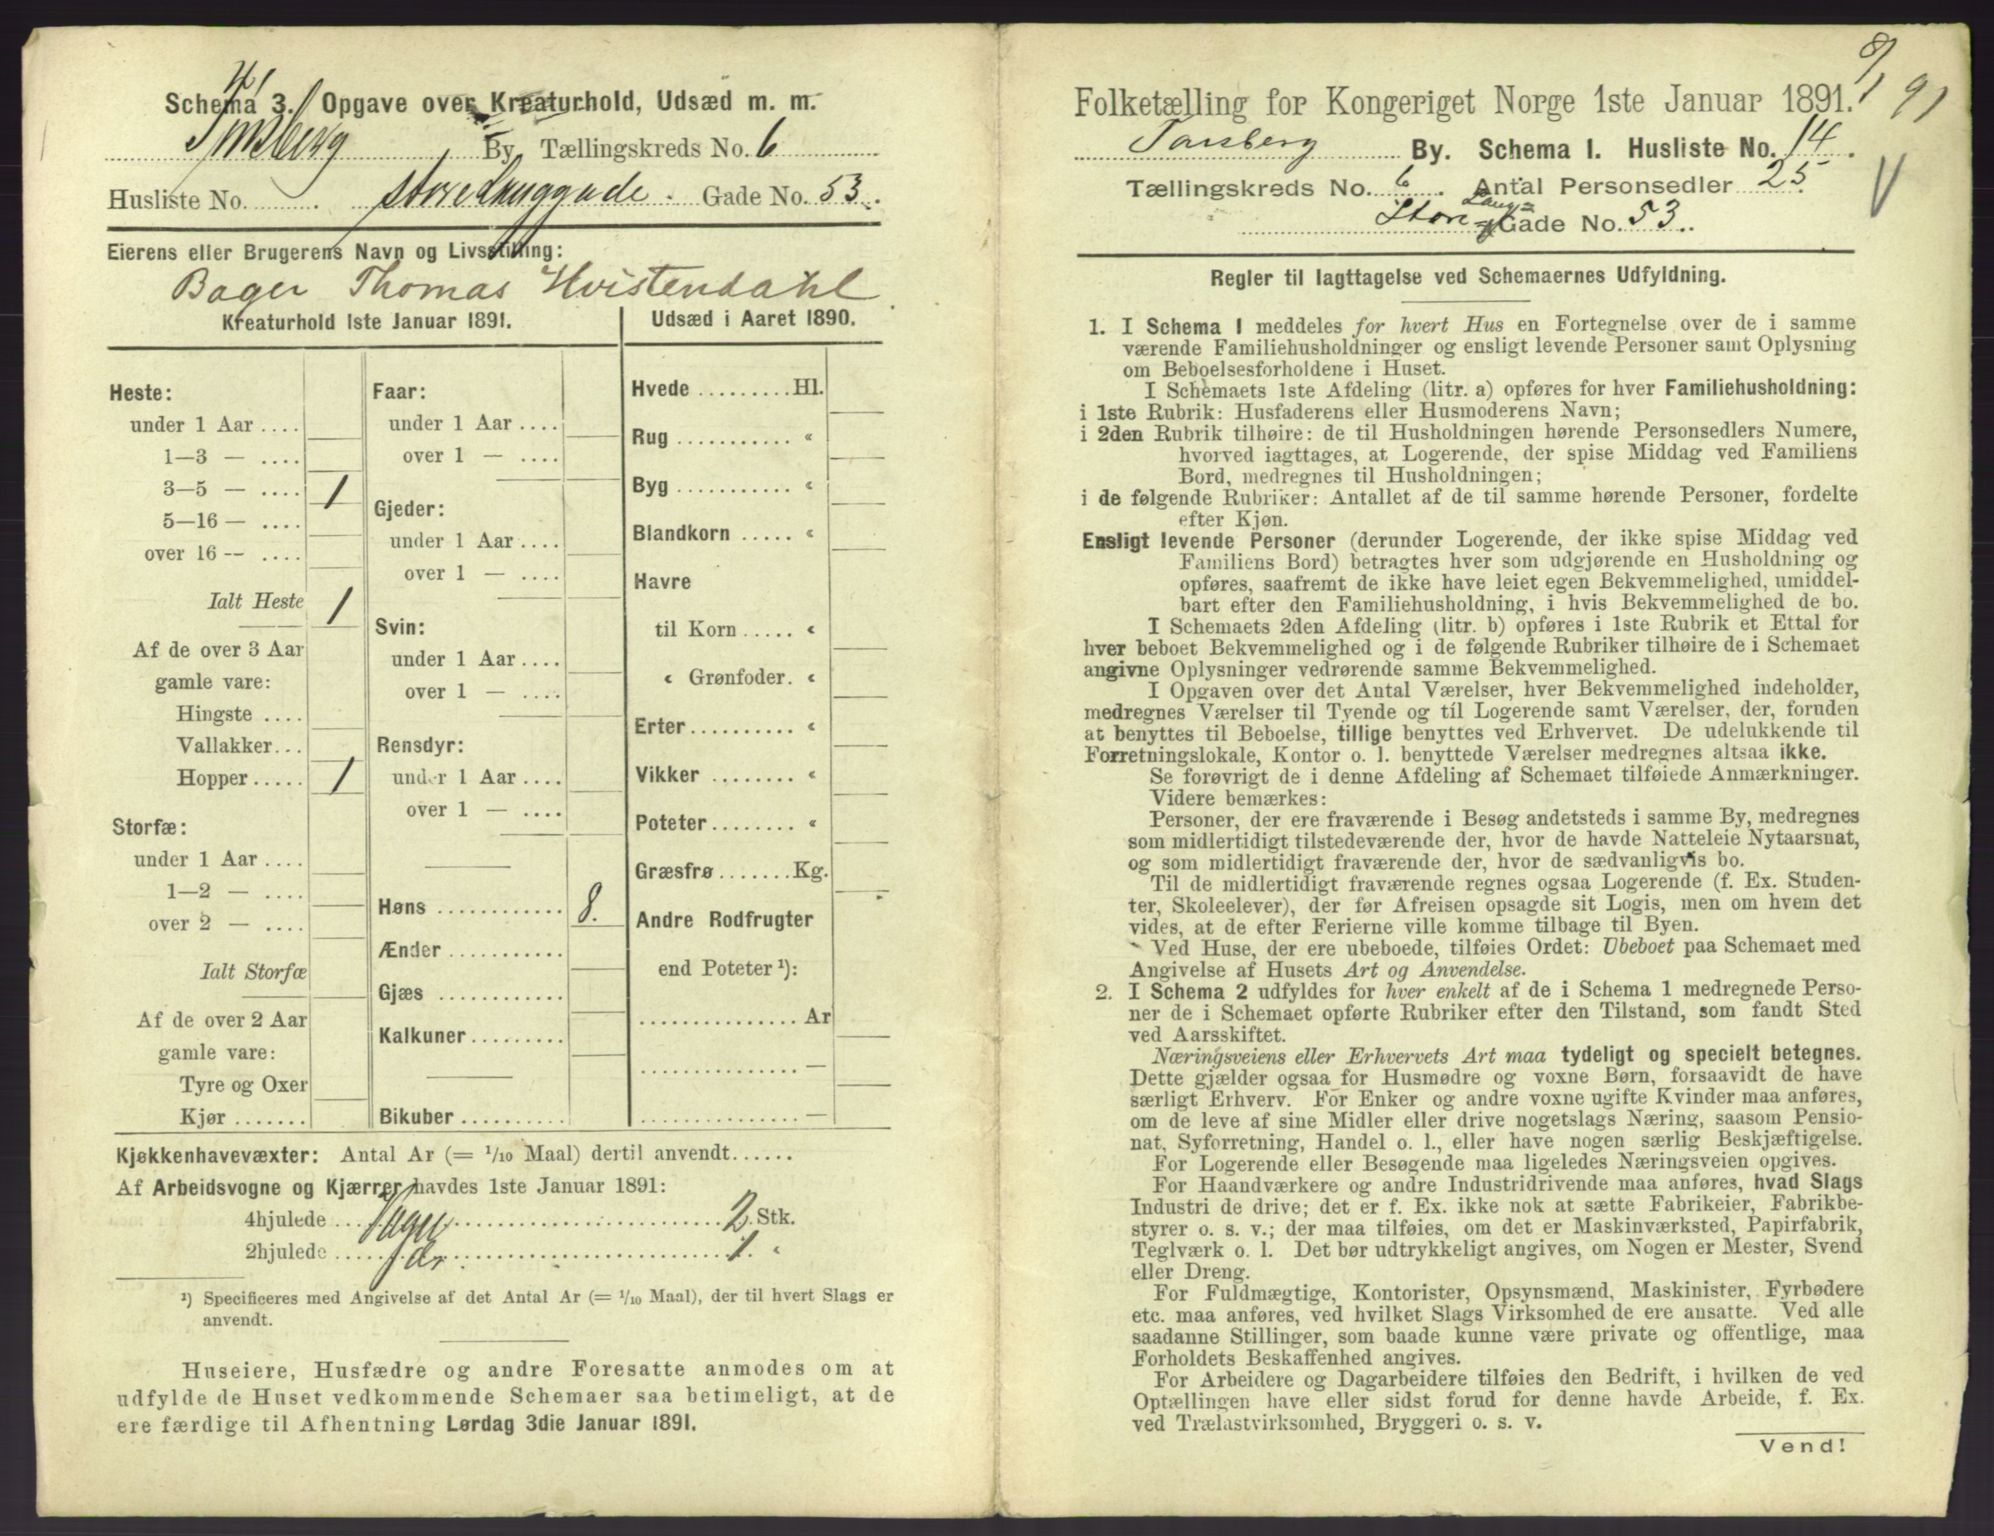 Schema 3. Opgave over Kreaturhold, Udsæd m. m.
Tønsberg By Tællingskreds No. 6
Husliste No. ........ store Langgade. Gade No. 53.
Eierens eller Brugerens Navn og Livsstilling:
Bager Thomas Hvistendahl
Kreaturhold 1ste Januar 1891.
Heste:
under 1 Aar ....
1—3 — ....
3—5 — .... 1
5—16 — ....
over 16 — ....
Ialt Heste 1
Af de over 3 Aar
gamle vare:
Hingste ....
Vallakker...
Hopper..... 1
Storfæ:
under 1 Aar ....
1—2 — ....
over 2 — ....
Ialt Storfæ
Af de over 2 Aar
gamle vare:
Tyre og Oxer
Kjør .......
Faar:
under 1 Aar ....
over 1 — ....
Gjeder:
under 1 Aar ....
over 1 — ....
Svin:
under 1 Aar ....
over 1 — ....
Rensdyr:
under 1 Aar ....
over 1 — ....
Høns ............ 8.
Ænder ...........
Gjæs ............
Kalkuner .........
Bikuber ..........
Udsæd i Aaret 1890.
Hvede ......... Hl.
Rug ........... «
Byg ........... «
Blandkorn ..... «
Havre
til Korn ..... «
« Grønfoder. «
Erter.......... «
Vikker ........ «
Poteter........ «
Græsfrø ....... Kg.
Andre Rodfrugter
end Poteter ¹):
............... Ar
............... —
............... —
Kjøkkenhavevæxter: Antal Ar (= 1/10 Maal) dertil anvendt......
Af Arbeidsvogne og Kjærrer havdes 1ste Januar 1891:
4hjulede ... Vogn ........ 2 Stk.
2hjulede ... do. ........ 1. «
¹) Specificeres med Angivelse af det Antal Ar (= 1/10 Maal), der til hvert Slags er
anvendt.
Huseiere, Husfædre og andre Foresatte anmodes om at
udfylde de Huset vedkommende Schemaer saa betimeligt, at de
ere færdige til Afhentning Lørdag 3die Januar 1891.
9/1 91
Folketælling for Kongeriget Norge 1ste Januar 1891.
Tønsberg By. Schema 1. Husliste No. 14.
Tællingskreds No. 6. Antal Personsedler 25
Store Lang= Gade No. 53..
Regler til Iagttagelse ved Schemaernes Udfyldning.
1. I Schema 1 meddeles for hvert Hus en Fortegnelse over de i samme
værende Familiehusholdninger og ensligt levende Personer samt Oplysning
om Beboelsesforholdene i Huset.
I Schemaets 1ste Afdeling (litr. a) opføres for hver Familiehusholdning:
i 1ste Rubrik: Husfaderens eller Husmoderens Navn;
i 2den Rubrik tilhøire: de til Husholdningen hørende Personsedlers Numere,
hvorved iagttages, at Logerende, der spise Middag ved Familiens
Bord, medregnes til Husholdningen;
i de følgende Rubriker: Antallet af de til samme hørende Personer, fordelte
efter Kjøn.
Ensligt levende Personer (derunder Logerende, der ikke spise Middag ved
Familiens Bord) betragtes hver som udgjørende en Husholdning og
opføres, saafremt de ikke have leiet egen Bekvemmelighed, umiddel-
bart efter den Familiehusholdning, i hvis Bekvemmelighed de bo.
I Schemaets 2den Afdeling (litr. b) opføres i 1ste Rubrik et Ettal for
hver beboet Bekvemmelighed og i de følgende Rubriker tilhøire de i Schemaet
angivne Oplysninger vedrørende samme Bekvemmelighed.
I Opgaven over det Antal Værelser, hver Bekvemmelighed indeholder,
medregnes Værelser til Tyende og til Logerende samt Værelser, der, foruden
at benyttes til Beboelse, tillige benyttes ved Erhvervet. De udelukkende til
Forretningslokale, Kontor o. l. benyttede Værelser medregnes altsaa ikke.
Se forøvrigt de i denne Afdeling af Schemaet tilføiede Anmærkninger.
Videre bemærkes:
Personer, der ere fraværende i Besøg andetsteds i samme By, medregnes
som midlertidigt tilstedeværende der, hvor de havde Natteleie Nytaarsnat,
og som midlertidigt fraværende der, hvor de sædvanligvis bo.
Til de midlertidigt fraværende regnes ogsaa Logerende (f. Ex. Studen-
ter, Skoleelever), der før Afreisen opsagde sit Logis, men om hvem det
vides, at de efter Ferierne ville komme tilbage til Byen.
Ved Huse, der ere ubeboede, tilføies Ordet: Ubeboet paa Schemaet med
Angivelse af Husets Art og Anvendelse.
2. I Schema 2 udfyldes for hver enkelt af de i Schema 1 medregnede Perso-
ner de i Schemaet opførte Rubriker efter den Tilstand, som fandt Sted
ved Aarsskiftet.
Næringsveiens eller Erhvervets Art maa tydeligt og specielt betegnes.
Dette gjælder ogsaa for Husmødre og voxne Børn, forsaavidt de have
særligt Erhverv. For Enker og andre voxne ugifte Kvinder maa anføres,
om de leve af sine Midler eller drive nogetslags Næring, saasom Pensio-
nat, Syforretning, Handel o. l., eller have nogen særlig Beskjæftigelse.
For Logerende eller Besøgende maa ligeledes Næringsveien opgives.
For Haandværkere og andre Industridrivende maa anføres, hvad Slags
Industri de drive; det er f. Ex. ikke nok at sætte Fabrikeier, Fabrikbe-
styrer o. s. v.; der maa tilføies, om det er Maskinværksted, Papirfabrik,
Teglværk o. l. Det bør udtrykkeligt angives, om Nogen er Mester, Svend
eller Dreng.
For Fuldmægtige, Kontorister, Opsynsmænd, Maskinister, Fyrbødere
etc. maa anføres, ved hvilket Slags Virksomhed de ere ansatte. Ved alle
saadanne Stillinger, som baade kunne være private og offentlige, maa
Forholdets Beskaffenhed angives.
For Arbeidere og Dagarbeidere tilføies den Bedrift, i hvilken de ved
Optællingen have eller sidst forud for denne havde Arbeide, f. Ex.
ved Trælastvirksomhed, Bryggeri o. s. v.
Vend!